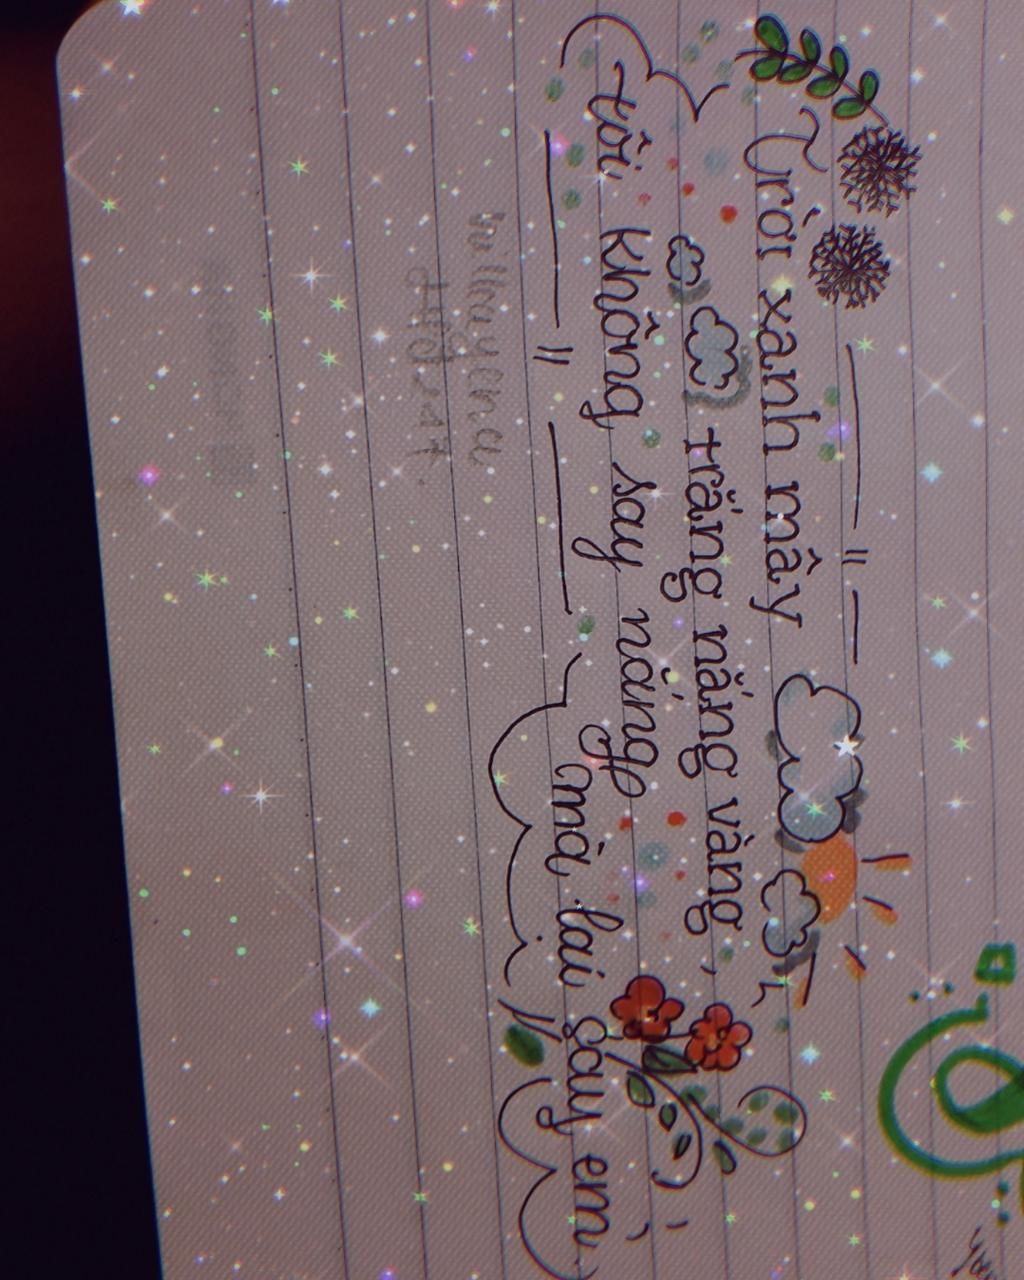 Trời xanh mây
trắng nắng vàng,
tôi không say nắng
mà lại say em